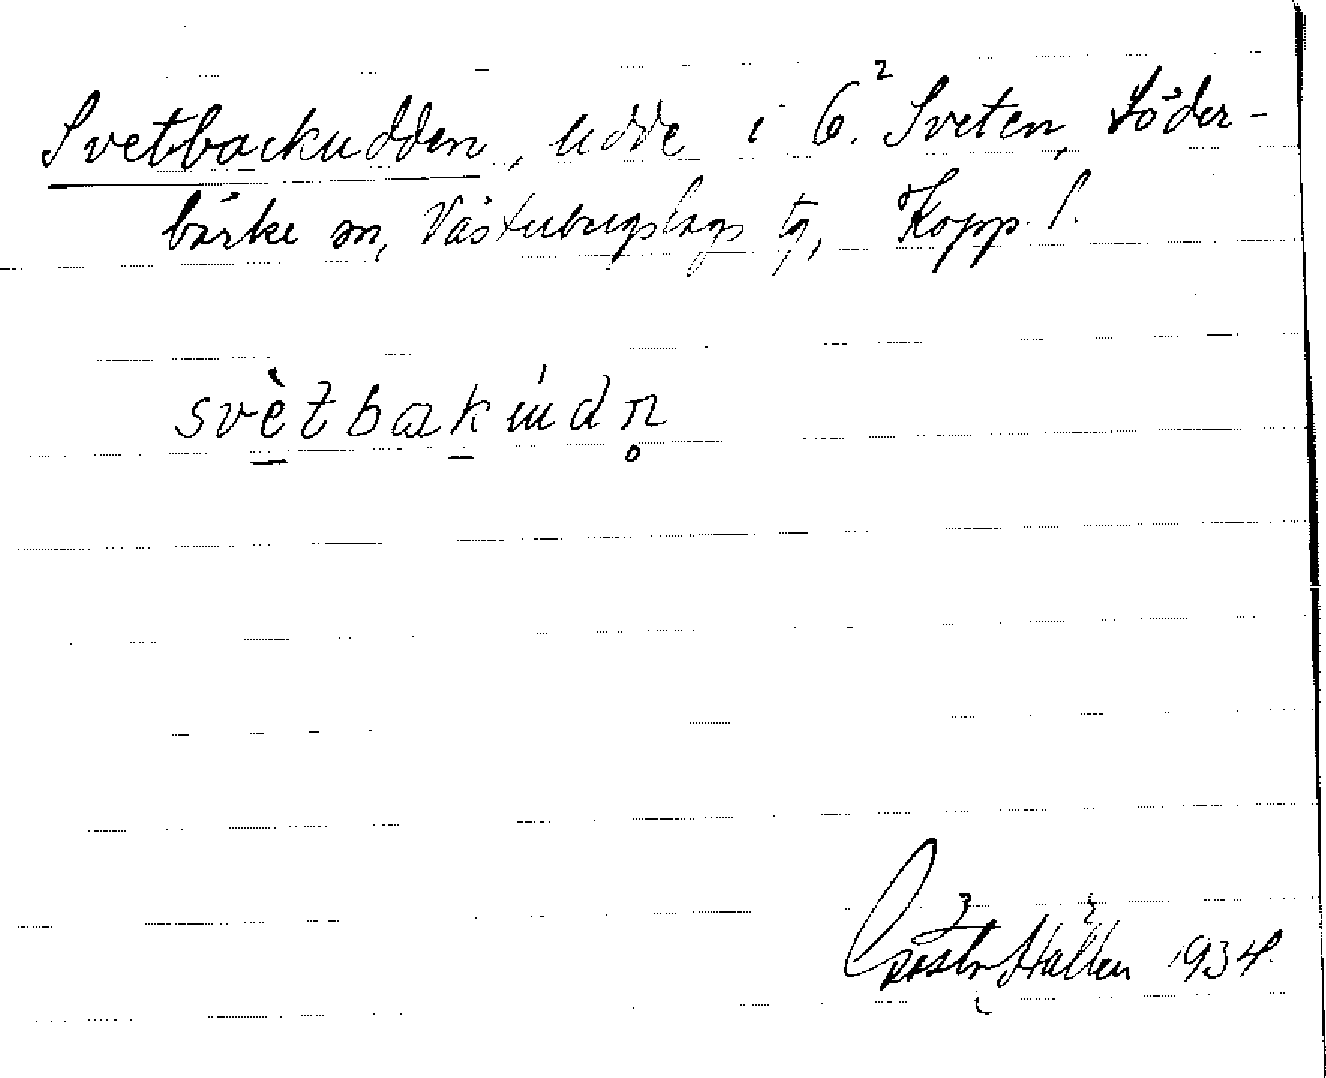 Svetbackudden, udde i 6.² Sveten, Söder-
bärke sn, Västerbergslags tg, Kopp. l.
svètbakúdn̥
Gösta Hallén 1934.